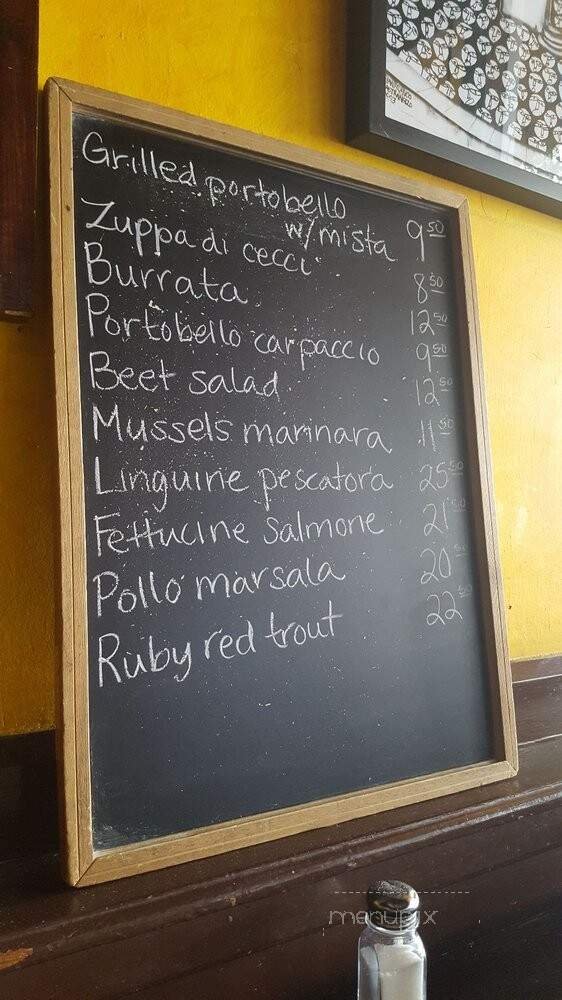 Grilled portobello
w/mista 9 50
Zuppa di cecci 8 50
Burrata 12 50
Portobello carpaccio 9 50
Beet salad 12 50
Mussels marinara 11 50
Linguine pescatora 25 50
Fettucine Salmone 21 50
Pollo marsala 20 50
Ruby red trout 22 50
menupix